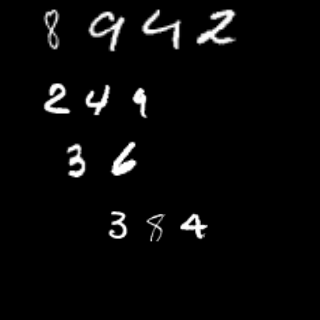 8942
249
36
384